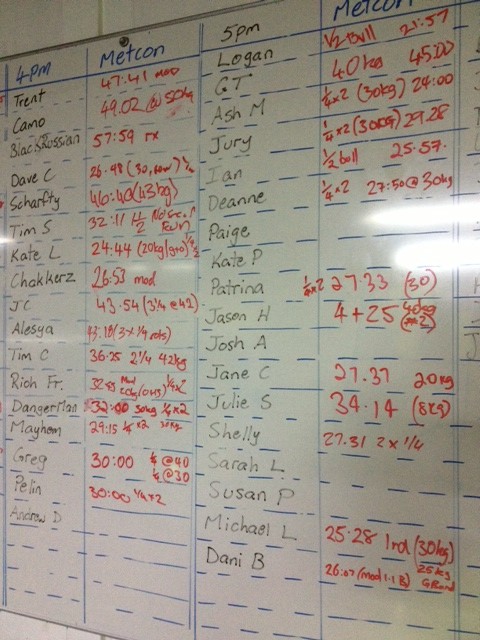 4pm Metcon
Trent 47:41 mod
Camo 49.02 @ 50kg
Black Russian 57:59 rx
Dave C 26.48 (30, row) 1/2
Scharfty 40:40 (43kg)
Tim S 32:11 1/2 No Run
Kate L 24:44 (20kg) 1/2
Chakkerz 26:53 mod
JC 43.54 (3 1/4 @ 42)
Alesya 43.18 (3x1/4 rots)
Tim C 36:25 2 1/4 42kg
Rich Fr. Mod 1/4x2
DangerMan 32:00 30kg 1/4x2
Mayhem 29:15 1/4x2 30kg
Greg 30:00 1/4 @ 40
1/4 @ 30
Pelin 30:00 1/4x2
Andrew D
5pm Metcon
Logan 1/2 Bull 21:57
GT 40kg 45:00
Ash M 1/4x2 (30kg) 24:00
Jury 1/4x2 (30kg) 29.28
Ian 1/2 bull 25:57.
Deanne 1/4x2 27:50 @ 30kg
Paige
Kate P
Patrina 1/4x2 27.33 (30)
Jason H 4 + 25 40kg
(#2)
Josh A
Jane C 27.37 20kg
Julie S 34.14 (8kg)
Shelly 27.31 2x1/4
Sarah L
Susan P
Michael L 25:28 1rd (30kg)
Dani B 26:07 (mod 1.1 B) 25kg
G Band